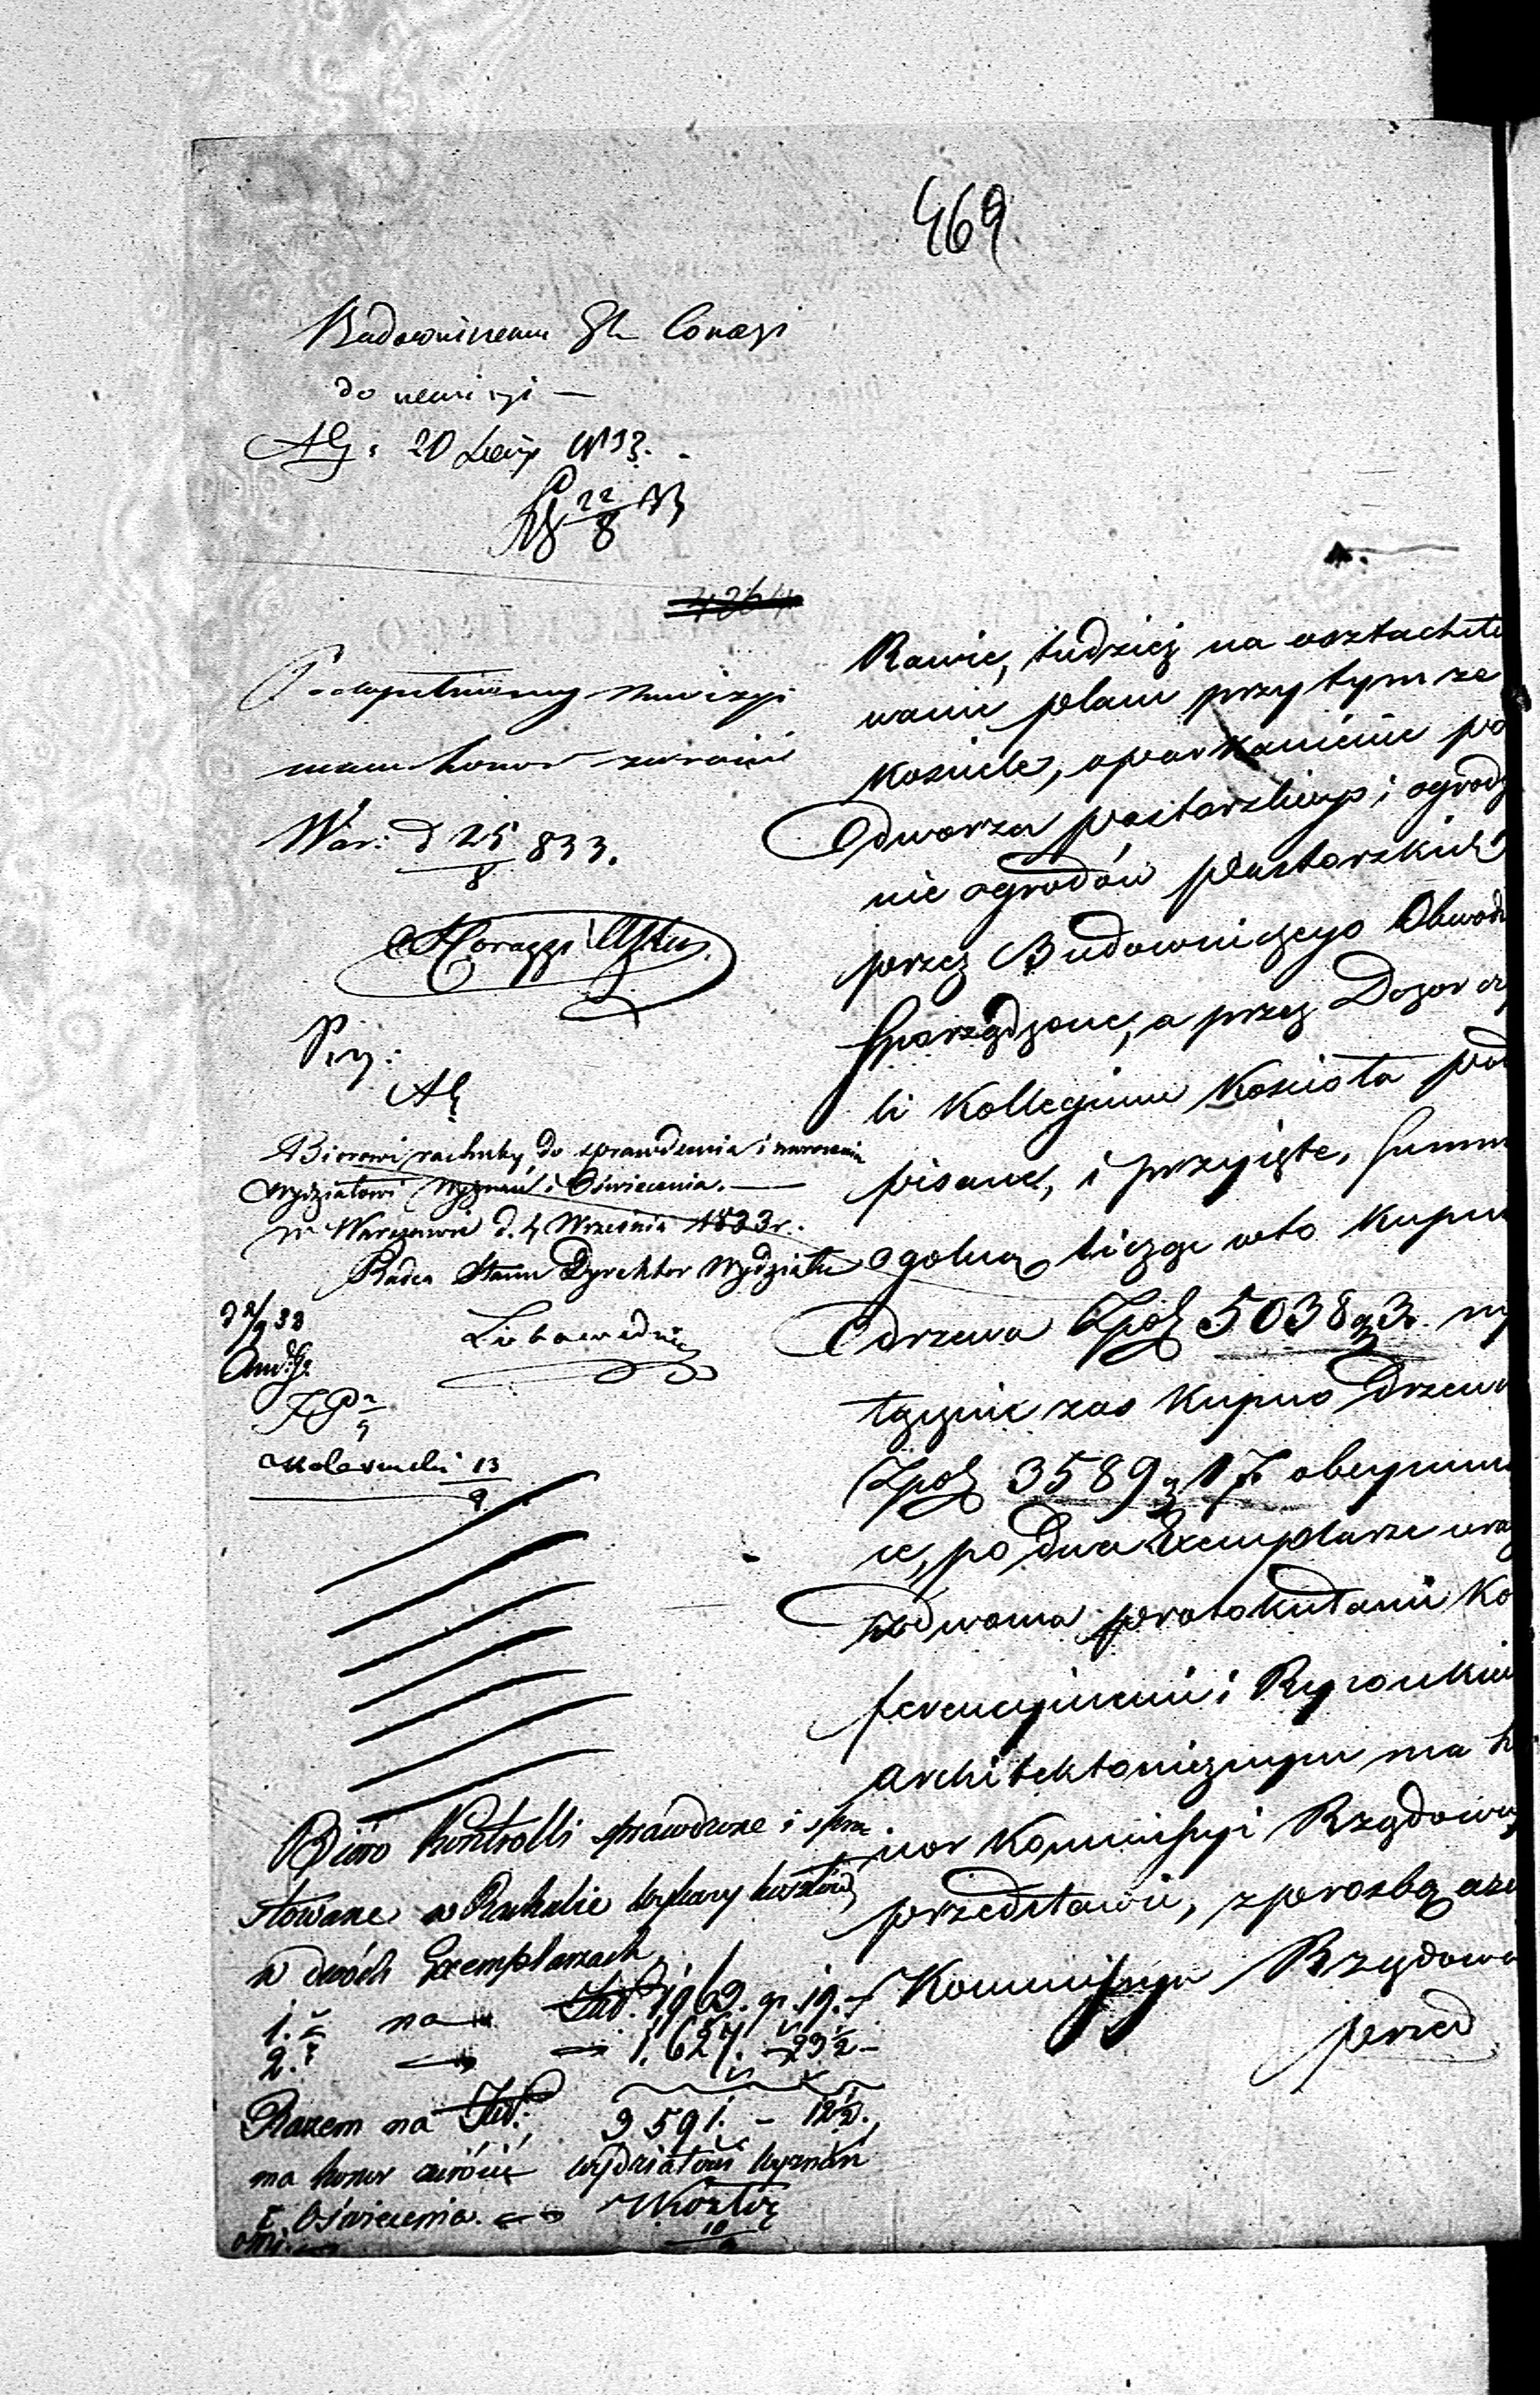 469
Budowniczemu Gł. Corazzi
do rewizyi —
20 1833.
22/8 33
4264
Podopełnieniu rewizyi
mam honor zwrócić
War: d 25/8 833.
Corazzi
Biorowi rachuby do sprawdzenia i zwrócenia
Wydziałowi Wyznań i Oświecenia. —
w Warszawie d. 4 Września 1833 r.
Radca Stanu Dyrektor Wydziału
9/33
13/9
Biuro Kontrolli sprawdzone i spro-
stowane w Rachubie wykazy kosztów
w dwóch Exemplarzach
1. na Złt. 1969. gr. 19. —
2. — — 1.627. — 23½ —
Razem na Złt: 3591. — 12½.,
ma honor zwrócić Wydziałowi Wyznań
i Oświecenia.
10/9
Rawie, tudzież na osztacheto
wanie placu przy tym ze
Kościele, oparkanienie po
dworza pastorskiego i ogrodze
nie ogrodów pastorskich
przez Budowniczego Obwodu
sporządzone, a przez Dozor czy
li Kollegium Kościoła pod
pisane, i przyięte, summ
ogolną licząc wto kupno
drzewa Złpol 5038 g 3. wy
łącznie zas kupno drzewa
Złpol 3589 g 17 obeymuią
ce, po dwa Exemplarze wraz
zdwoma protokułami Ko
ferencyinemi i Rysunkiem
architektonicznym ma ho
nor Kommissyi Rządowey
przedstawić, z prozbą aże
Kommissya Rządowa
przed